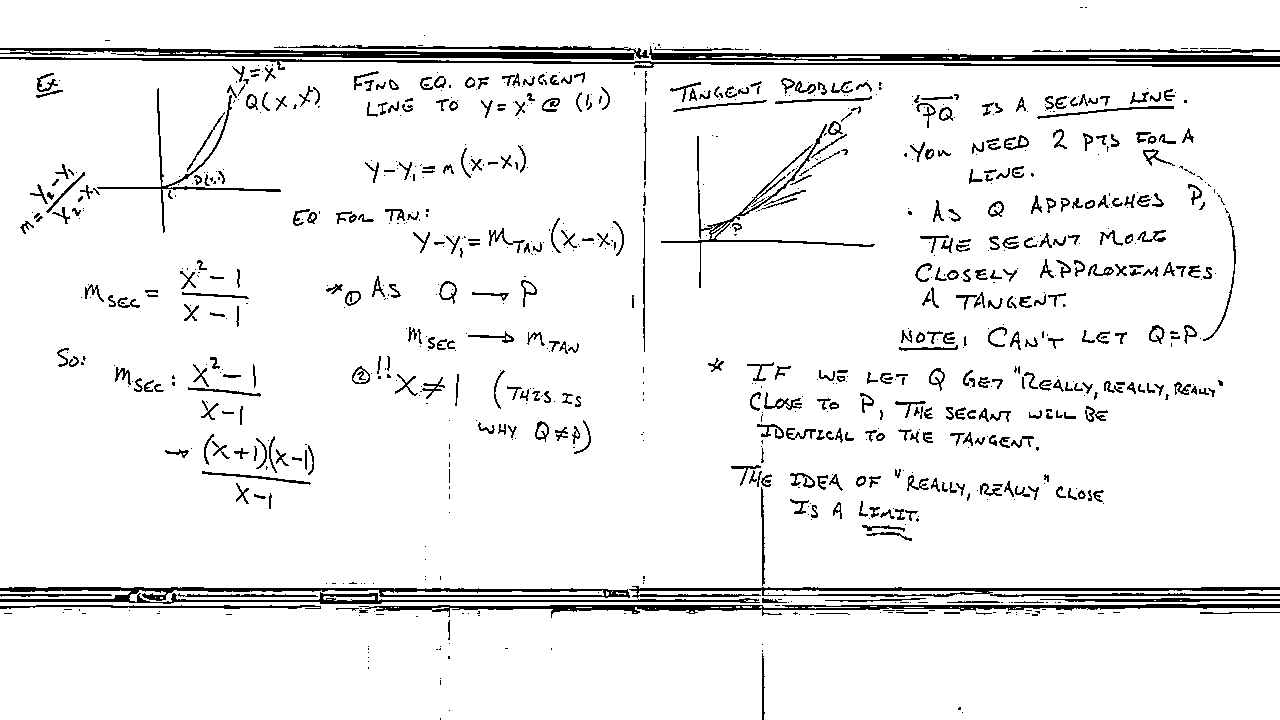 Ex
y=x²
Q(x, x²)
P(1,1)
m = y₂-y₁ / x₂-x₁
m SEC = x²-1 / x-1
So:
m SEC : x²-1 / x-1
→ (x+1)(x-1) / x-1
FIND EQ. OF TANGENT
LINE TO y=x² @ (1,1)
y-y₁=m(x-x₁)
EQ FOR TAN:
y-y₁=m TAN (x-x₁)
* ① AS Q → P
m SEC → m TAN
② !! x ≠ 1 (THIS IS
WHY Q≠P)
TANGENT PROBLEM:
Q
P
PQ IS A SECANT LINE.
· YOU NEED 2 PTS FOR A
LINE.
· AS Q APPROACHES P,
THE SECANT MORE
CLOSELY APPROXIMATES
A TANGENT.
NOTE: CAN'T LET Q=P
* IF WE LET Q GET "REALLY, REALLY, REALLY"
CLOSE TO P, THE SECANT WILL BE
IDENTICAL TO THE TANGENT.
THE IDEA OF "REALLY, REALLY" CLOSE
IS A LIMIT.